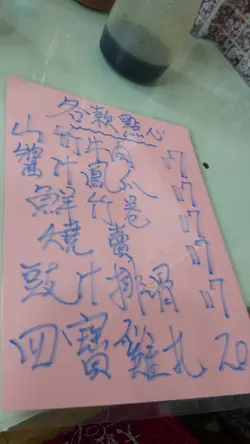 各款點心
山竹牛肉 17
醬汁鳳爪 17
鮮竹卷 17
燒賣 17
豉汁排骨 17
四寶雞扎 20